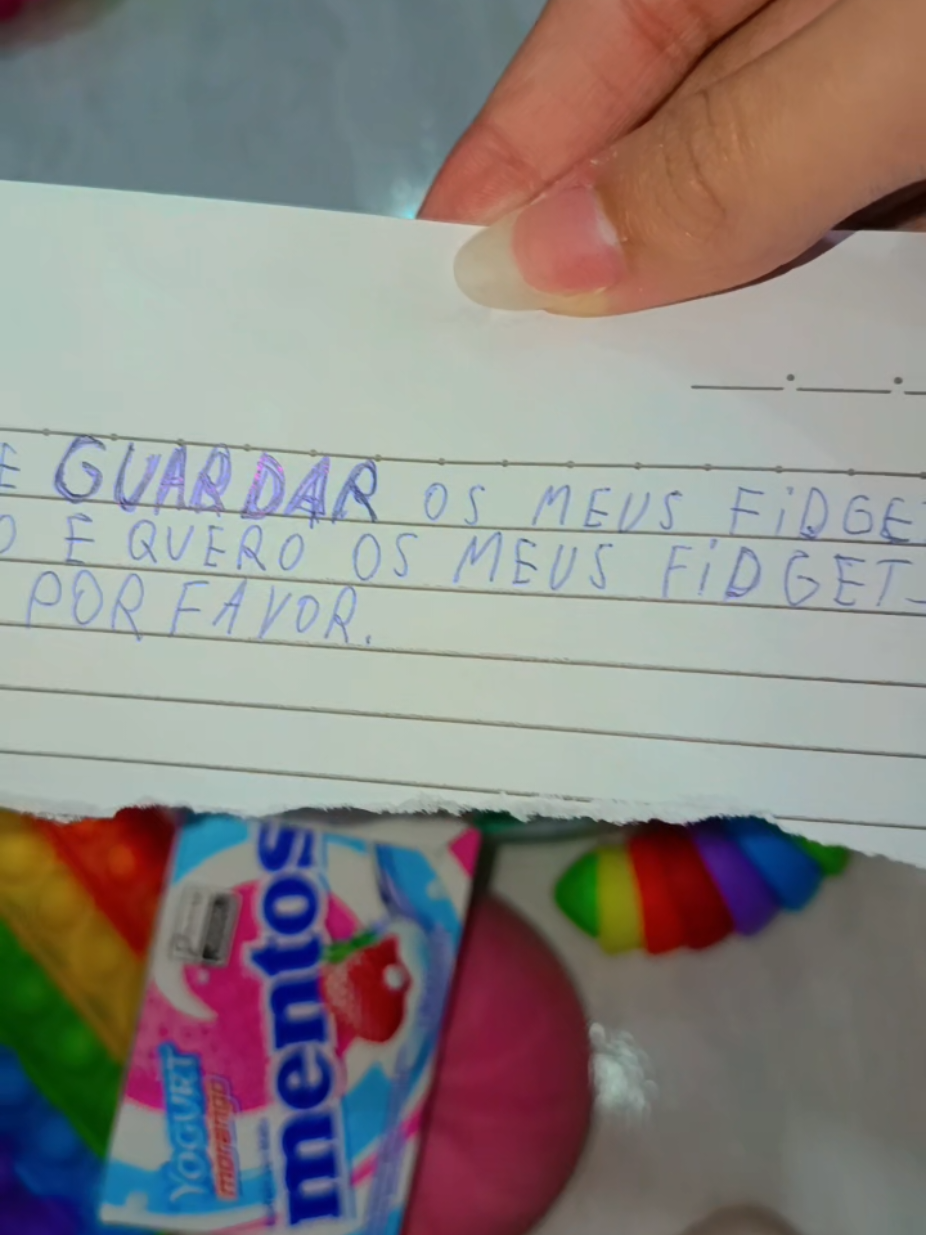 E GUARDAR OS MEUS FiDGE
O E QUERO OS MEUS FiDGET-
POR FAVOR.
mentos
YOGURT
morango